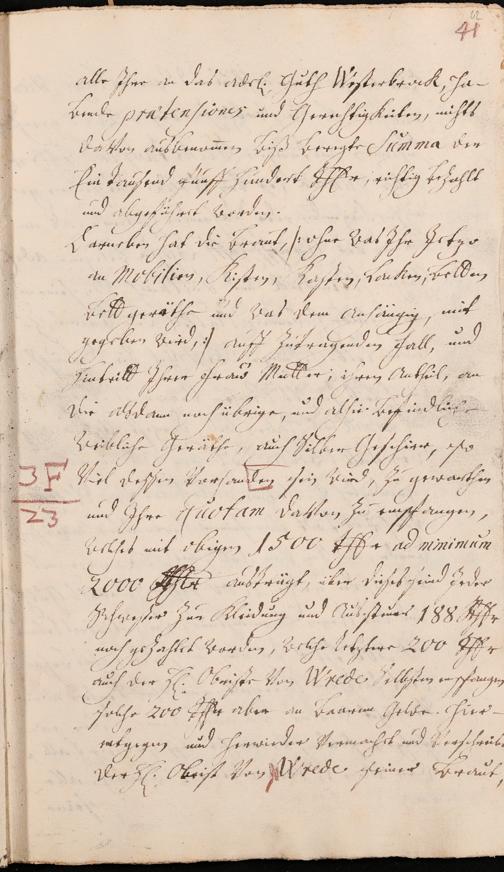 41
alle Ihre an das adel. Guth Westerbrock, ha-
bende prætensiones und Gerechtigkeiten, nichts
davon ausbenommen biß beregte Summa der
Ein tausend fünff Hundert Thlr, richtig bezahlt
und abgeführet worden.
Darneben hat die Braut, /: ohne was Ihr
an Mobilien, Kisten, Kasten, Betten
Bettgeräthe und was dem anhängig, mit
gegeben wird, :/ auff zutragenden Fall, und
Hintritt Ihrer Frau Mutter, ihren Antheil, an
die alsdann noch übrige, und alhie befindliche
Weibliche Geräthe, auch Silber Geschier, so
viel dessen vorhanden sein wird, zu gewarten
3F
23
und Ihre quotam davon zu empfangen,
welches mit obigen 1500 Thlr ad minimum
2000 Thlr austrägt, über dieses sind jeder
Schwester zur Kleidung und Aussteuer 188 Thlr
noch gezahlet worden, welche letztere 200 Thlr
auch der H. Obrister von Wrede selbsten empfangen
solche 200 Thlr aber an baarem Gelde. Hier-
entgegen und herwieder vermacht und verschreibt
der H. Obrist von Wrede seiner Braut,